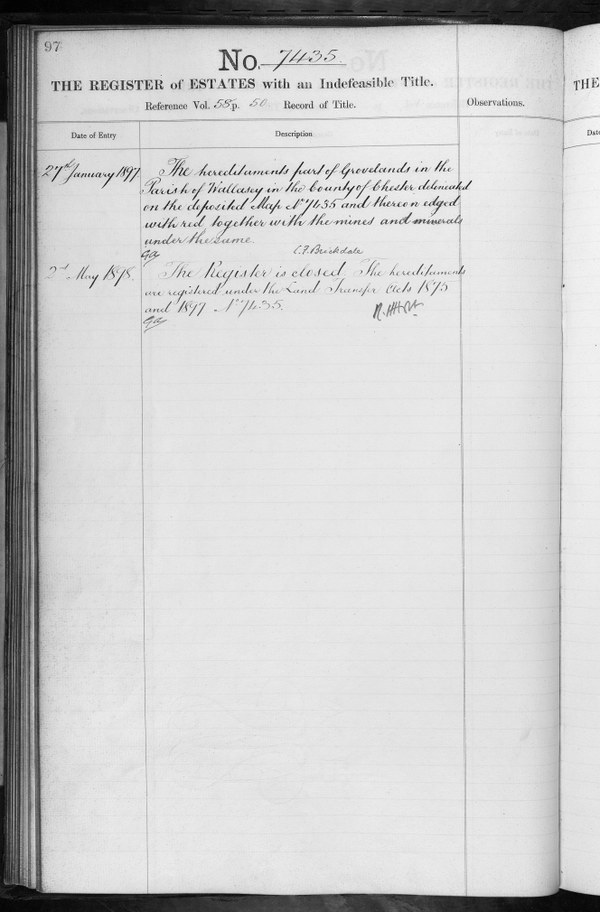 97
No. 7435.
THE REGISTER of ESTATES with an Indefeasible Title.
Reference Vol. 58 p. 50 Record of Title.
Observations.
Date of Entry
Description
27th January 1897
The hereditaments part of Grovelands in the
Parish of Wallasey in the County of Chester delineated
on the deposited Map No 7435 and thereon edged
with red together with the mines and minerals
under the same.
C.F. Brickdale
2nd May 1898.
The Register is closed. The hereditaments
are registered under the Land Transfer Acts 1875
and 1897 No 7435.
THE
Dat